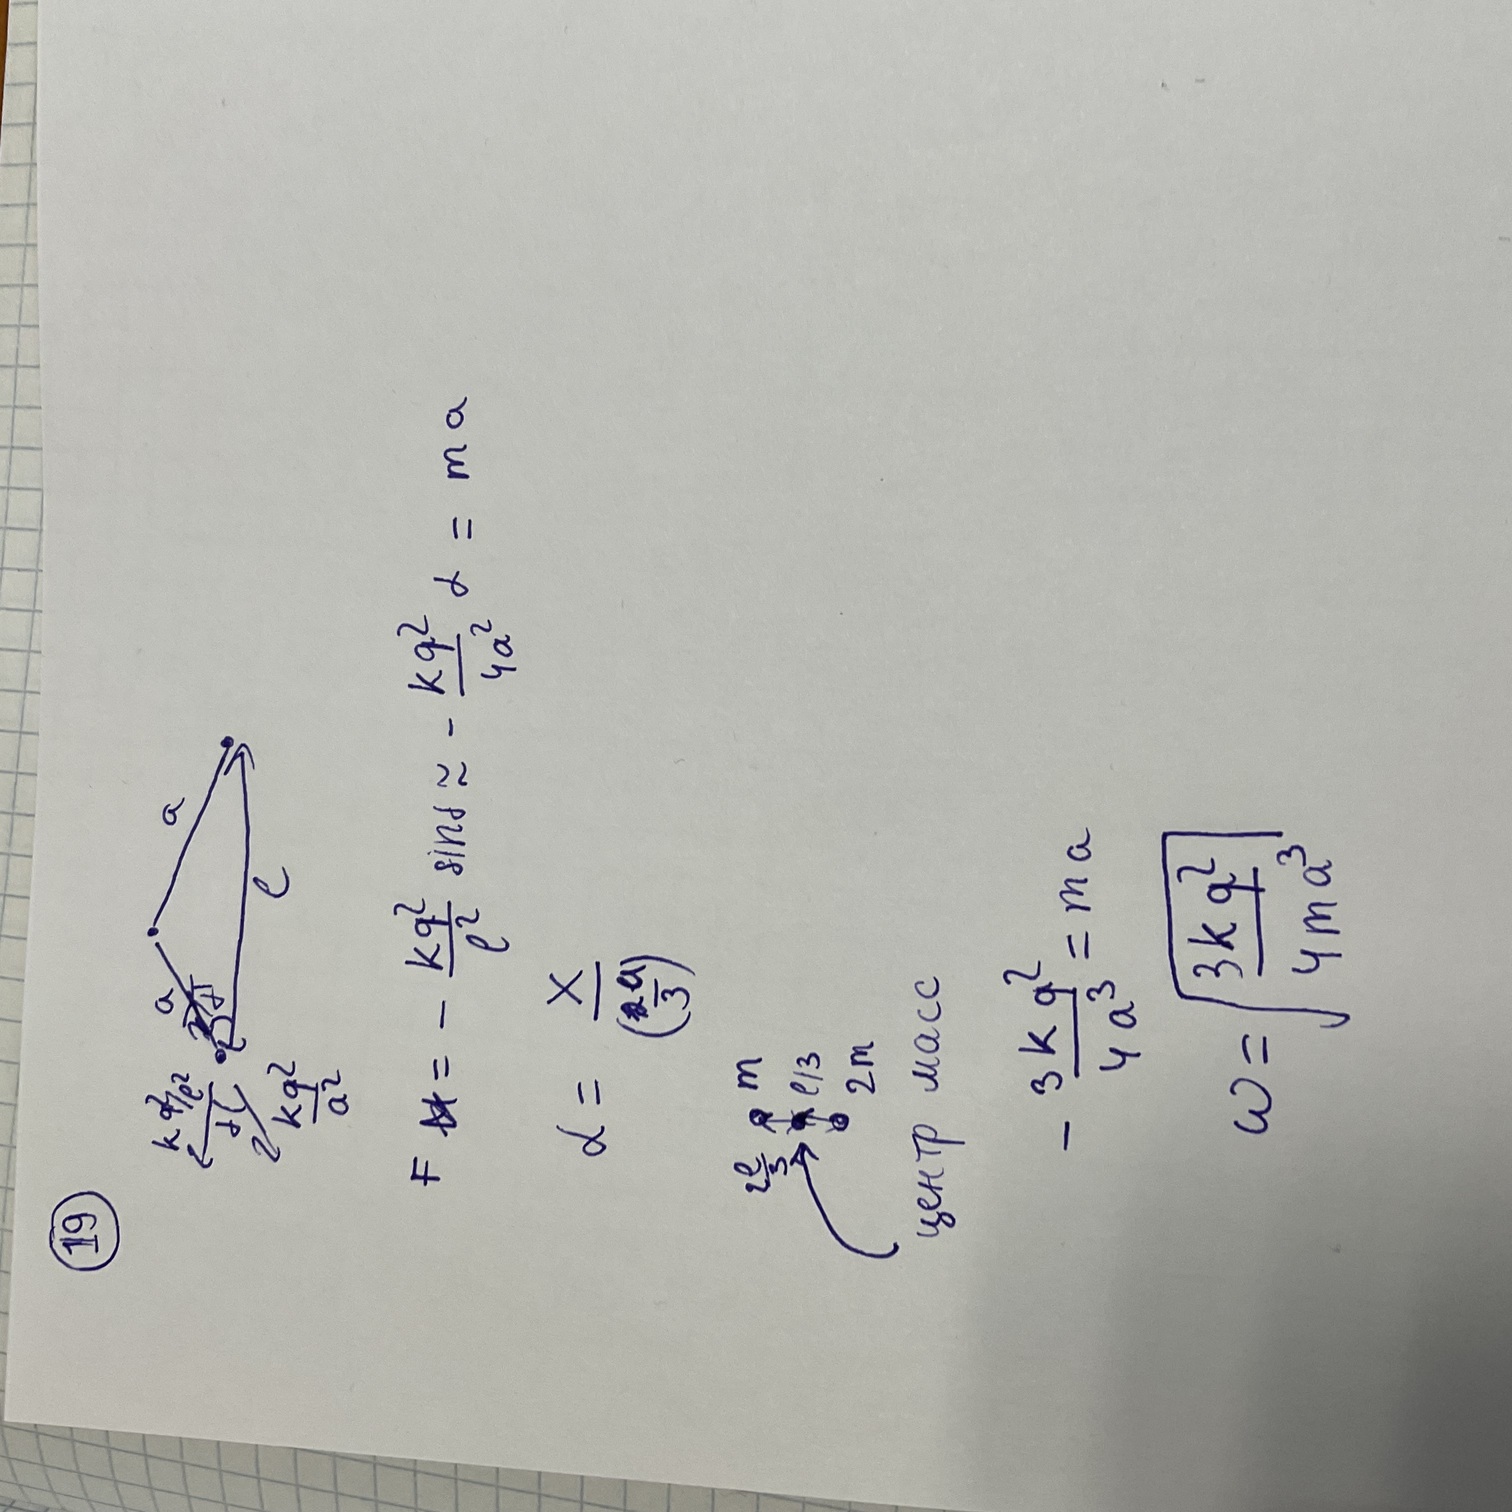 19
a a
α
kq²/l²
α
kq²/a²
l
F = - kq²/l² sinα ≈ - kq²/4a² α = ma
α = x/(2a/3)
m
2l/3 l/3
2m
центр масс
- 3kq²/4a³ = ma
ω = √(3kq²/4ma³)